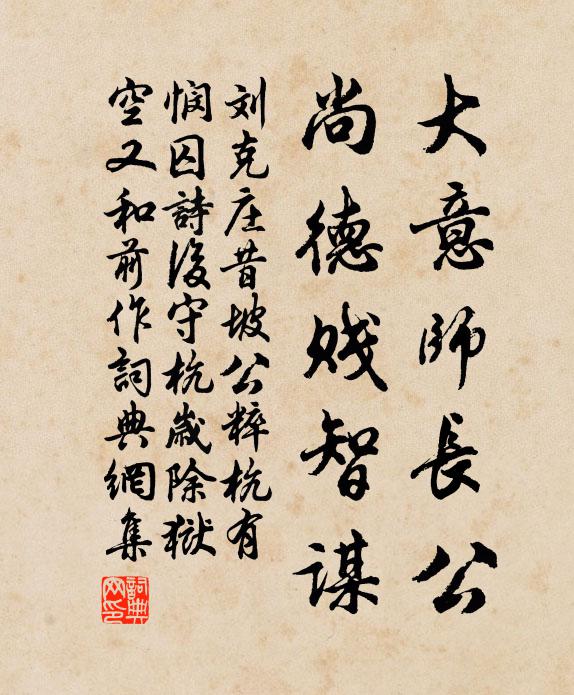 大意師長公
尚德賤智謀
刘克庄昔坡公粹杭有
悯囚詩後守杭歲除獄
空又和前作詞典網集
詞典网印